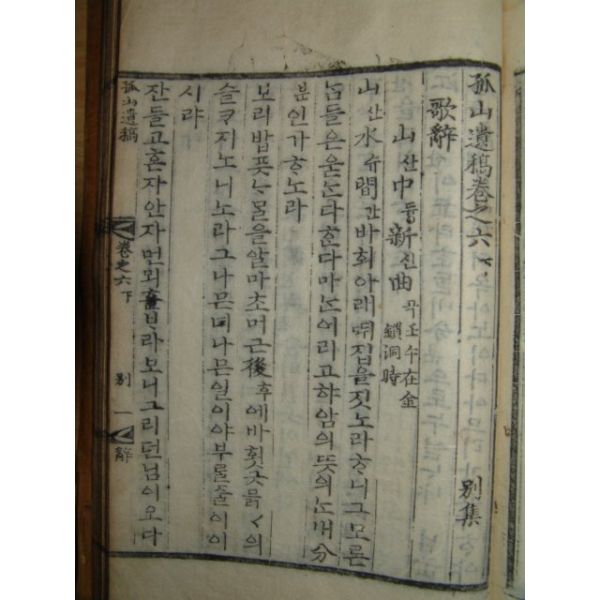 孤山遺稿卷之六 下 別集
歌辭
山산中듕新신曲곡 壬午在金鎖洞時
山산水슈間간바회아래ᄠᅱ집을짓노라ᄒᆞ니그모론
ᄂᆞᆷ들은욷ᄂᆞᆫ다ᄒᆞᆫ다마ᄂᆞᆫ어리고햐암의뜻의ᄂᆞᆫ내分
분인가ᄒᆞ노라
보리밥픗ᄂᆞᄆᆞᆯ을알마초머근後후에바횟긋믉ᄀᆞ의
슬ᄏᆞ지노니노라그나믄녀나믄일이야부ᄅᆞᆯ줄이이
시랴
잔들고혼자안자먼뫼흘ᄇᆞ라보니그리던님이오다
孤山遺稿 卷之六 下 別 一 辭